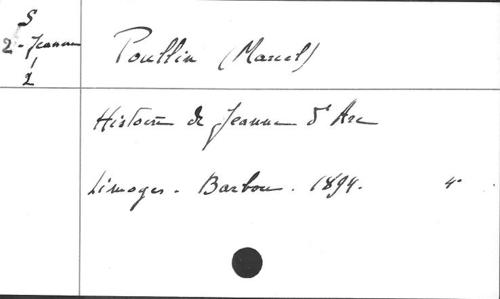 S
2 - Jeanne
1
2
Poullin (Marcel)
Histoire de Jeanne d'Arc
Limoges. Barbou. 1894. 4°